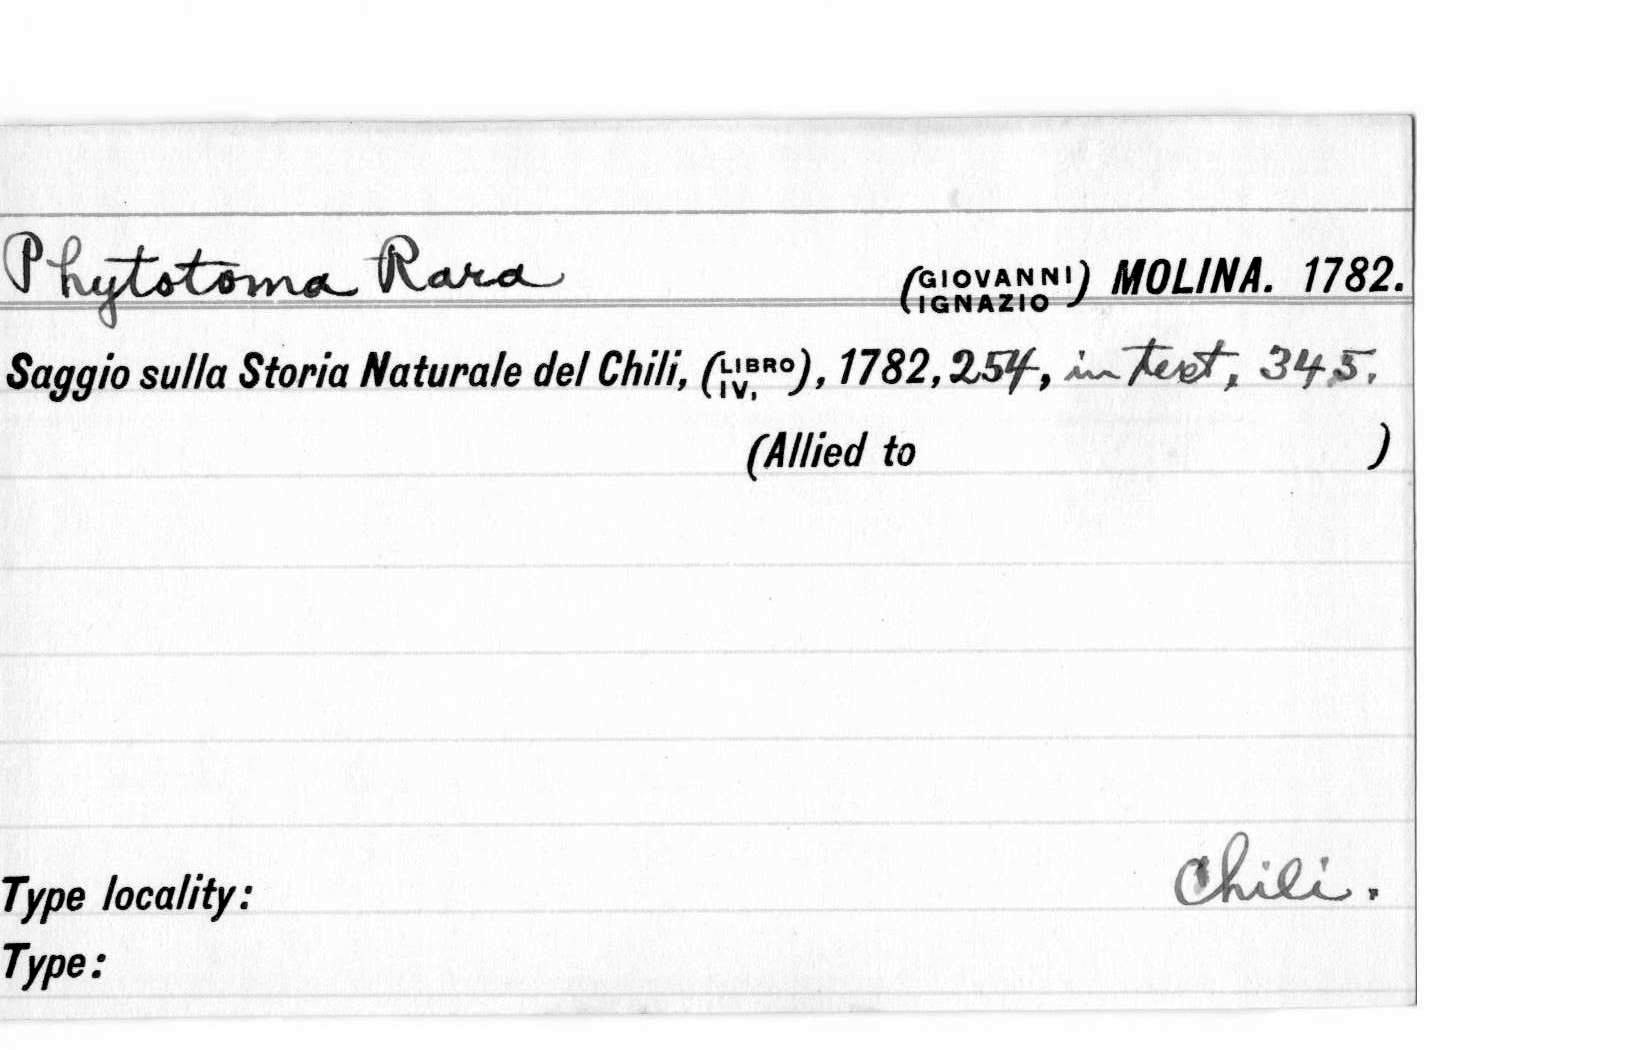 Phytotoma Rara (GIOVANNI IGNAZIO) MOLINA. 1782.
Saggio sulla Storia Naturale del Chili, (LIBRO IV,), 1782, 254, in text, 345.
(Allied to )
Chili.
Type locality:
Type: